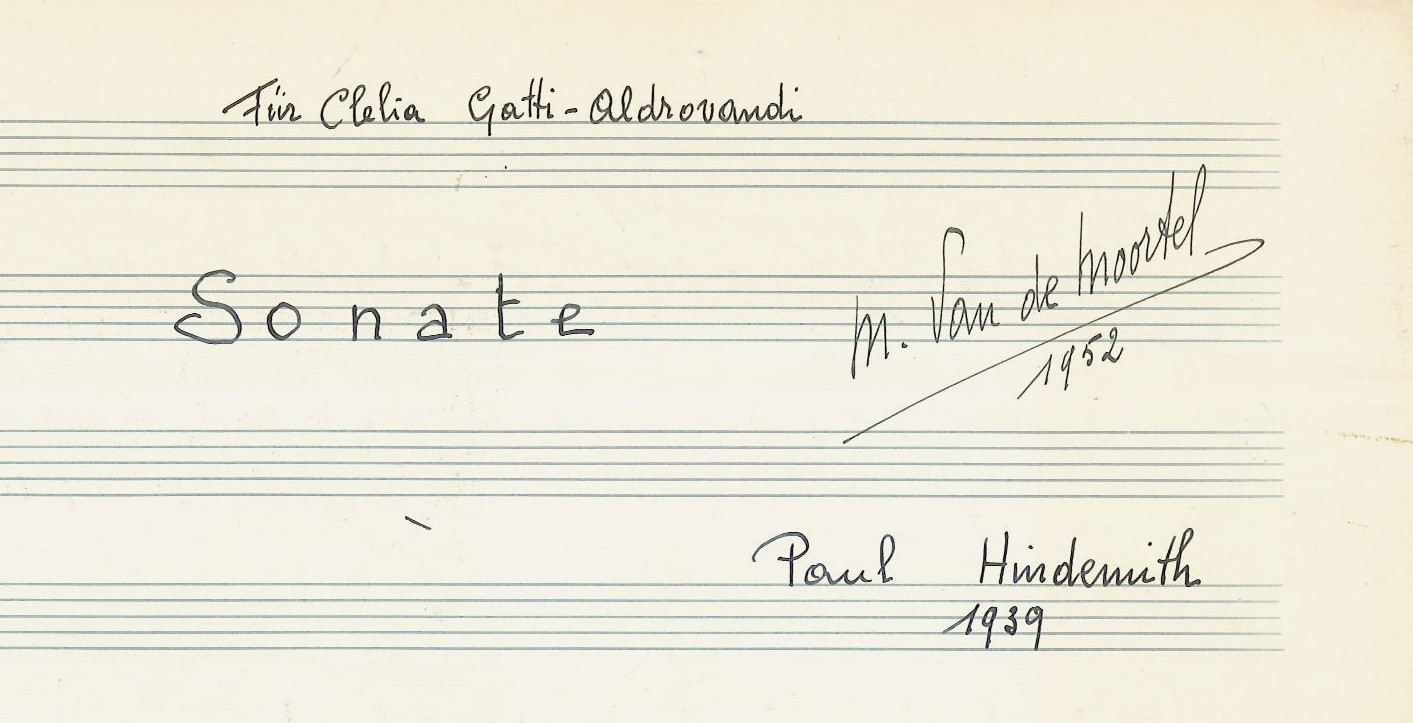 Für Clelia Gatti-Aldrovandi
Sonate
M. Van de Moortel
1952
Paul Hindemith
1939